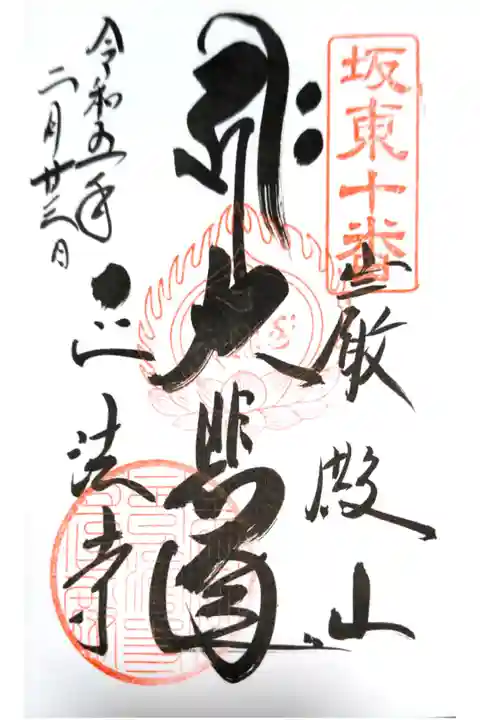 坂東十番
巌殿山
大悲閣
正法寺
令和五年
二月廿三日